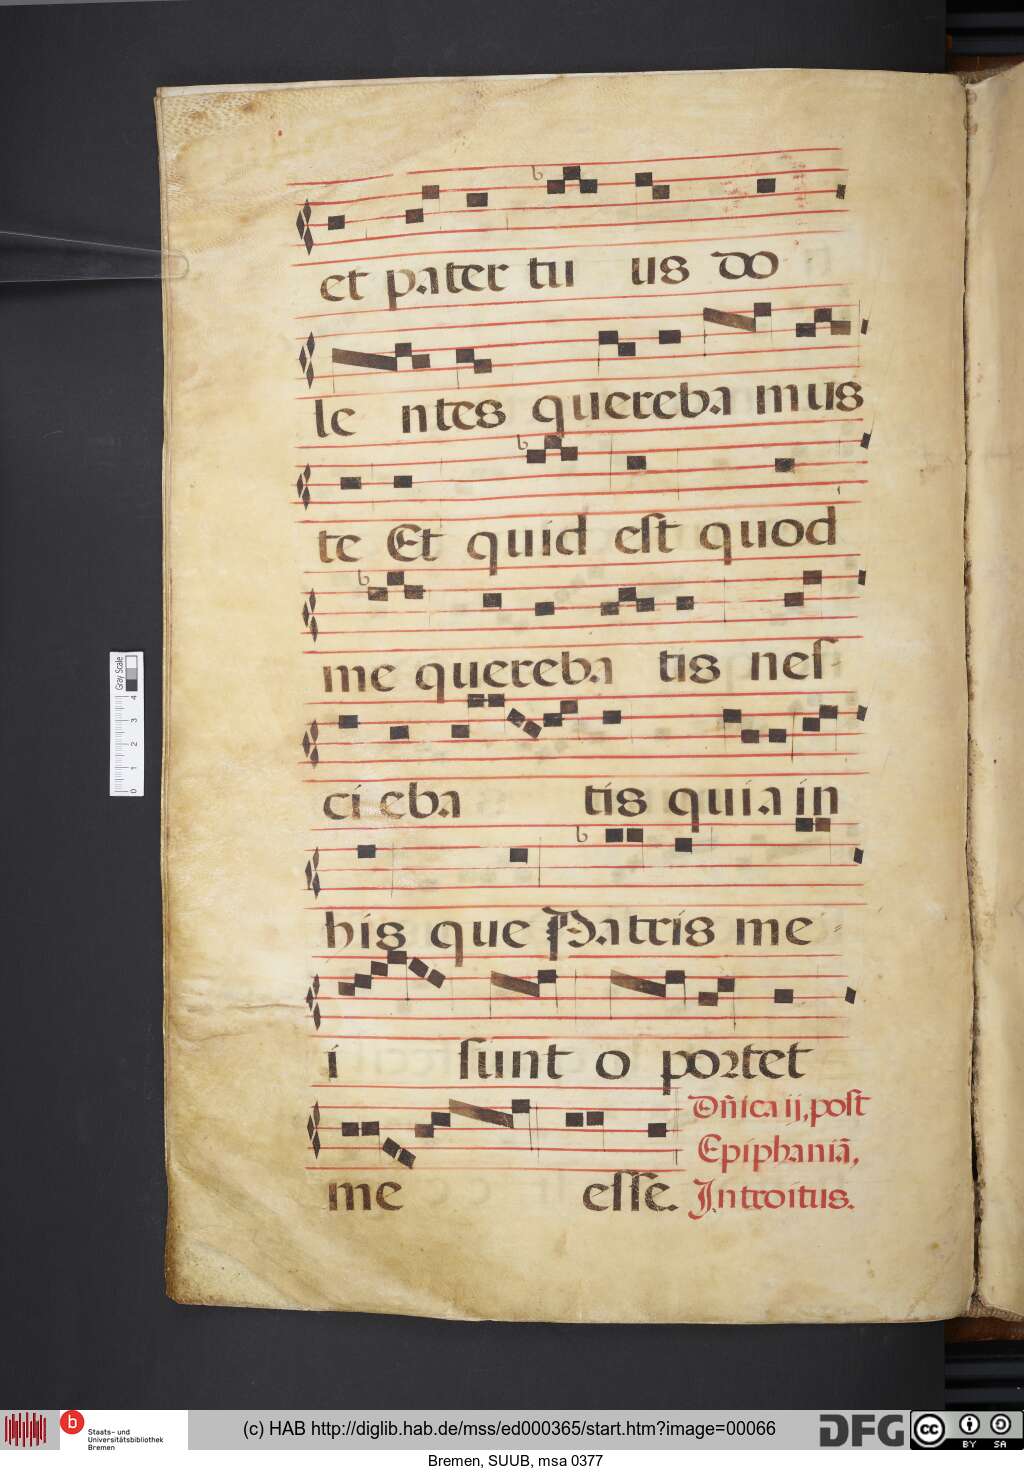 et pater tu us do
le ntes quereba mus
te Et quid est quod
me quereba tis nes
ci eba tis quia in
his que Patris me
i sunt o portet
me esse.
Dñica ij, post
Epiphaniã,
Introitus.
Gray Scale
0 1 2 3 4
b Staats- und
Universitätsbibliothek
Bremen
(c) HAB http://diglib.hab.de/mss/ed000365/start.htm?image=00066
DFG
cc BY SA
Bremen, SUUB, msa 0377